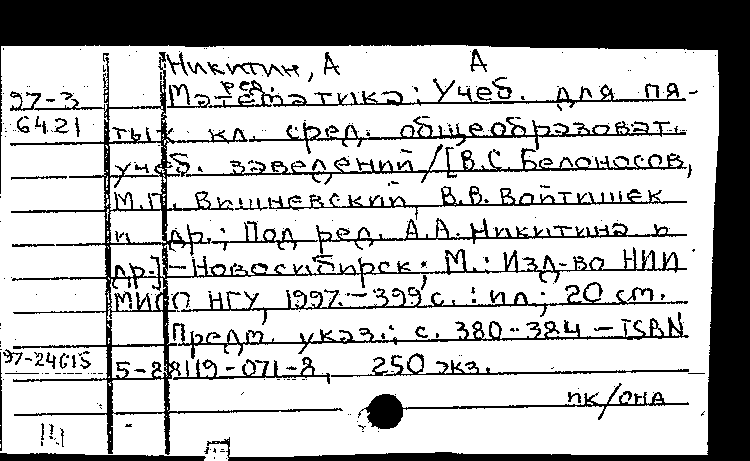 Никитин, А А
ред.
97-3 Математика: Учеб. для пя-
6421 тых кл. сред. общеобразоват.
учеб. заведений / [В.С. Белоносов,
М.П. Вишневский, В.В. Войтишек
и др.; Под ред. А.А. Никитина и
др.] - Новосибирск; М.: Изд-во НИИ
МИОО НГУ, 1997. - 399 с. : ил.; 20 см.
Предм. указ.: с. 380-384 - ISBN
97-24615 5-88119-071-8, 250 экз.
ПК/ОНА